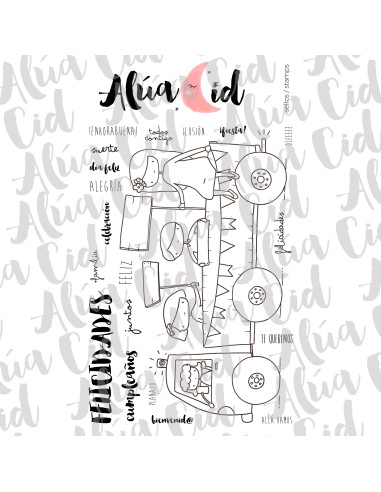 Alúa Cid
sellos / stamps
¡ENHORABUENA!
todos contigo
ILUSIÓN
¡fiesta!
suerte
día feliz
ALEGRÍA
celebración
familia
FELIZ
felicidades
FELICIDADES
cumpleaños
juntos
TE QUEREMOS
bienvenid@
ALLÁ VAMOS